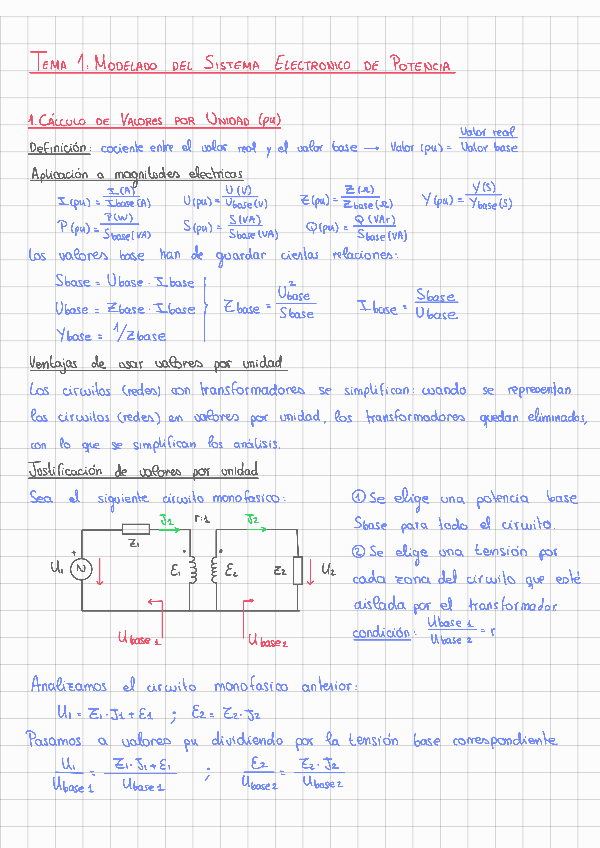 TEMA 1: MODELADO DEL SISTEMA ELECTRONICO DE POTENCIA
1. CÁLCULO DE VALORES POR UNIDAD (pu)
Definición: cociente entre el valor real y el valor base → Valor (pu) = Valor real / Valor base
Aplicación a magnitudes electricas
I(pu) = I(A) / Ibase(A)   U(pu) = U(V) / Ubase(V)   Z(pu) = Z(Ω) / Zbase(Ω)   Y(pu) = Y(S) / Ybase(S)
P(pu) = P(W) / Sbase(VA)   S(pu) = S(VA) / Sbase(VA)   Q(pu) = Q(VAr) / Sbase(VA)
Los valores base han de guardar ciertas relaciones:
Sbase = Ubase · Ibase
Ubase = Zbase · Ibase   Zbase = U²base / Sbase   Ibase = Sbase / Ubase
Ybase = 1/Zbase
Ventajas de usar valores por unidad
Los circuitos (redes) con transformadores se simplifican: cuando se representan
los circuitos (redes) en valores por unidad, los transformadores quedan eliminados,
con lo que se simplifican los análisis.
Justificación de valores por unidad
Sea el siguiente circuito monofasico:
J1 r:1 J2
Z1
U1 + N E1 E2 Z2 U2
Ubase1 Ubase2
① Se elige una potencia base
Sbase para todo el circuito.
② Se elige una tensión por
cada zona del circuito que esté
aislada por el transformador
condición: Ubase1 / Ubase2 = r
Analizamos el circuito monofasico anterior:
U1 = Z1·J1 + E1 ; E2 = Z2·J2
Pasamos a valores pu dividiendo por la tensión base correspondiente
U1 / Ubase1 = Z1·J1+E1 / Ubase1 ; E2 / Ubase2 = Z2·J2 / Ubase2